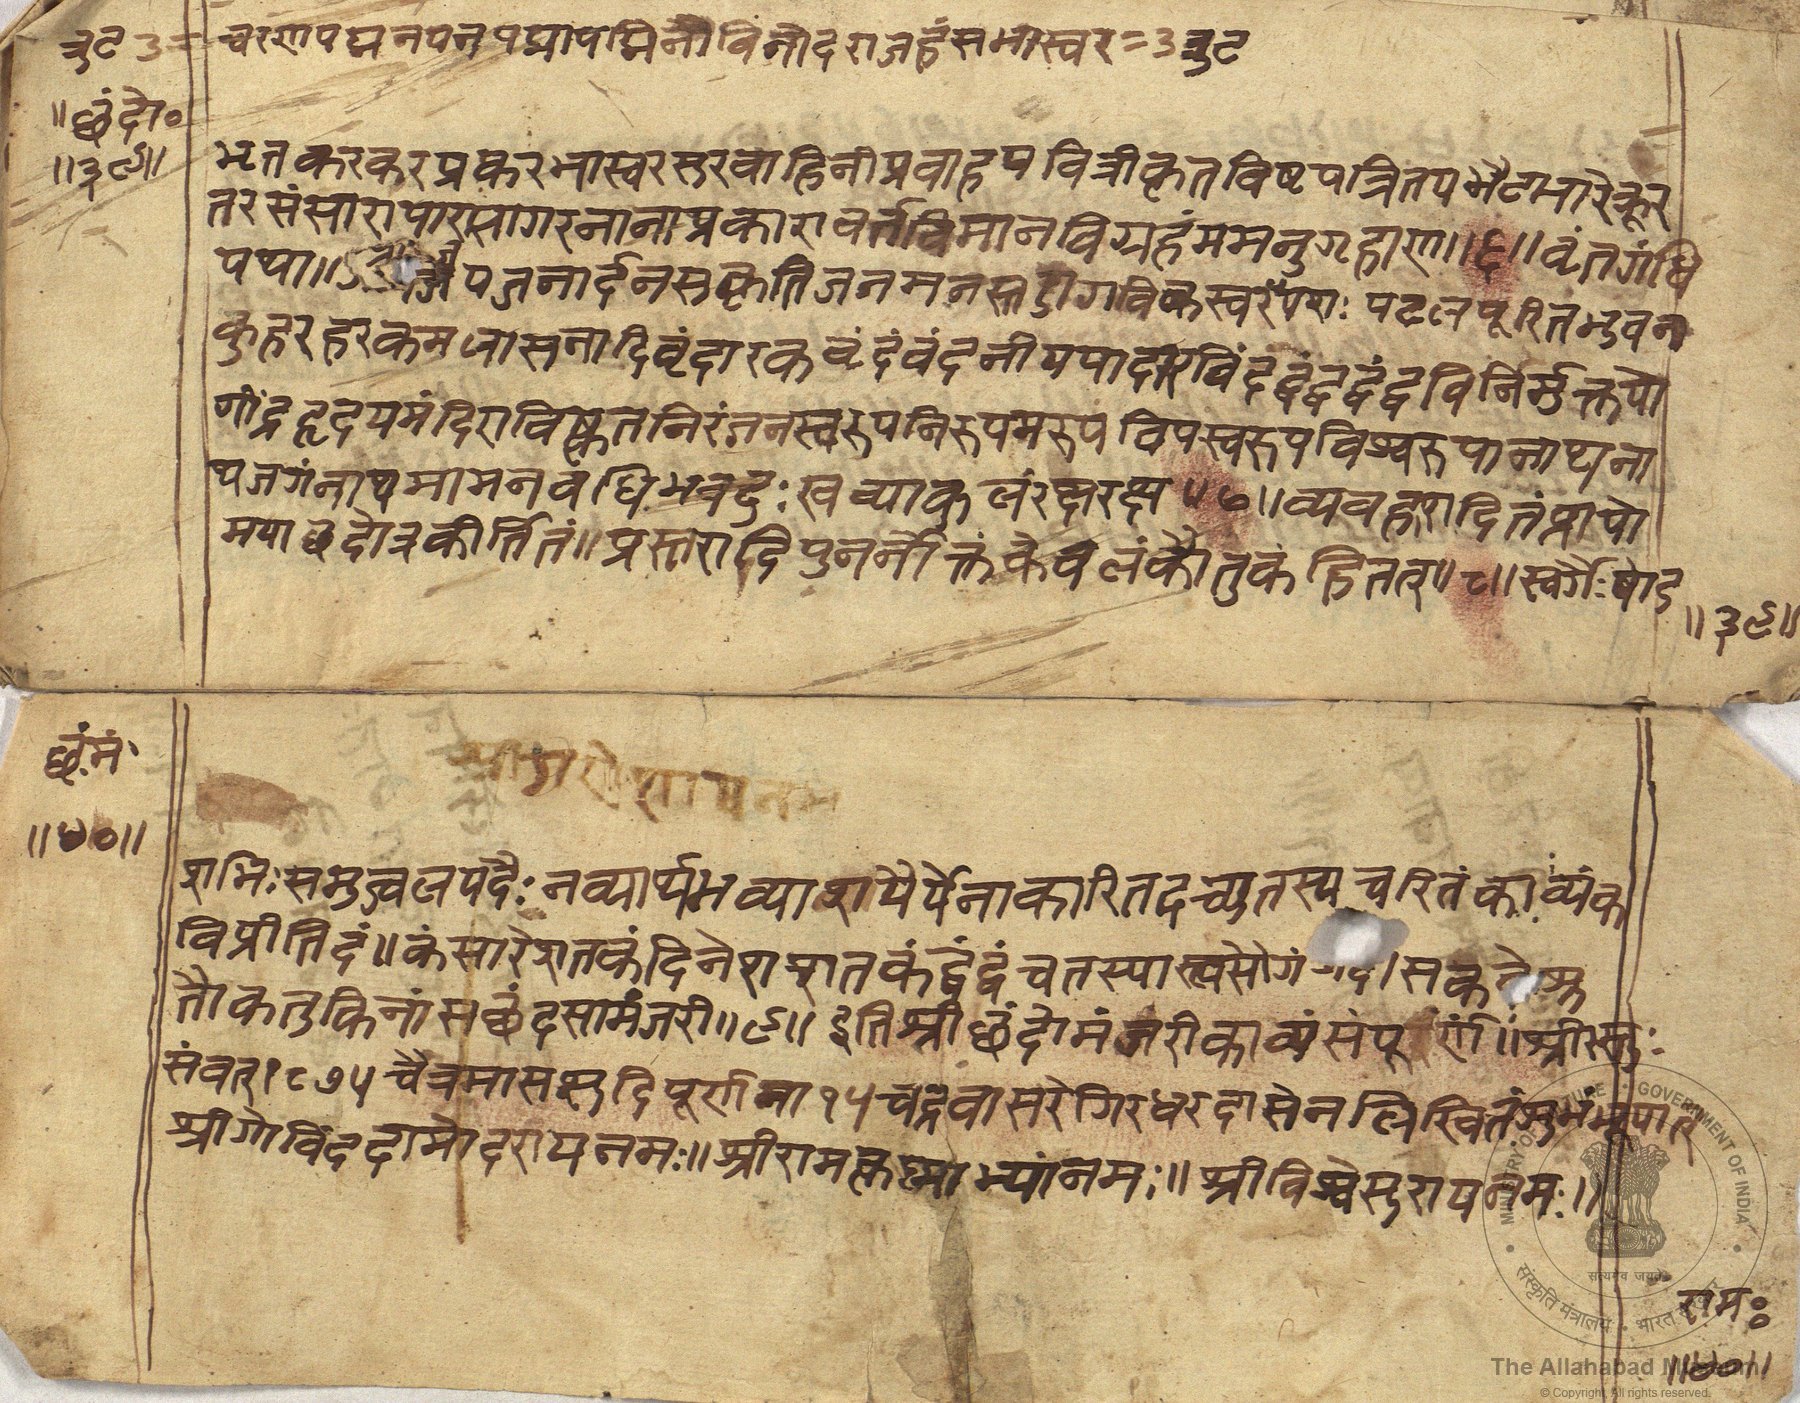 त्रुट ३ = चरणपद्मनपन पद्मापद्मिनीविनोदराजहंसभास्वर = ३ त्रुट
॥छंदो॰
॥३९॥
भृतकरकरप्रकरभास्वरसुरवाहिनीप्रवाहपवित्रीकृतविष्टपत्रितय कैटभारे क्रूर
तरसंसारापारसागरनानाप्रकारावर्त्तविमानविग्रहंममनुगृहाण॥६॥वृंतगंधि
पथा॥ जयजनार्दनसुकृतिजनमनस्तडागविकस्वर पटलपूरितभुवन
कुहरहरकमलासनादिवृंदारकवृंदवंदनीयपादारविंदद्वंद्वद्वंद्वविनिर्मुक्तयो
गींद्रहृदयमंदिराविष्कृतनिरंजनस्वरूपनिरूपमरूप विपस्वरूपविश्वरुपानाथना
थजगंनाथमामनवधिभवदुःखव्याकुलंरक्षरक्ष॥७॥व्यवहारादितंप्रायो
मयाछंदोत्रकीर्त्तितं॥प्रस्तारादिपुनर्नोक्तंकेवलंकौतुकंहितत्॥८॥स्वर्गैःषोड
॥३९॥
छं.मं
॥४०॥
श्रीगणेशायनम
शभिःसमुज्वलपदैःनव्यार्थभव्याशयैर्येनाकारितदच्युतस्य चरितंकाव्यंक
विप्रीतिदं॥कंसारेःशतकंदिनेशशतकंद्वंद्वंचतस्यास्त्वसौगं सकते
तौकतुकिनांसछंदसामंजरी॥९॥इतिश्रीछंदोमंजरीकाव्यंसंपूर्णं॥श्रीरस्तुः
संवत्१८७५चैत्रमाससुदिपूर्णीमा१५चंद्रवासरेगिरधरदासेनलिखितंसुभंभूयात्
श्रीगोविंददामोदरायनमः॥श्रीरामकृष्णाभ्यांनमः॥श्रीविश्वेसुरायनमः॥
MINISTRY OF CULTURE • GOVERNMENT OF INDIA
सत्यमेव जयते
संस्कृति मंत्रालय • भारत
राम॰
The Allahabad Museum
॥४०॥
© Copyright, All rights reserved.